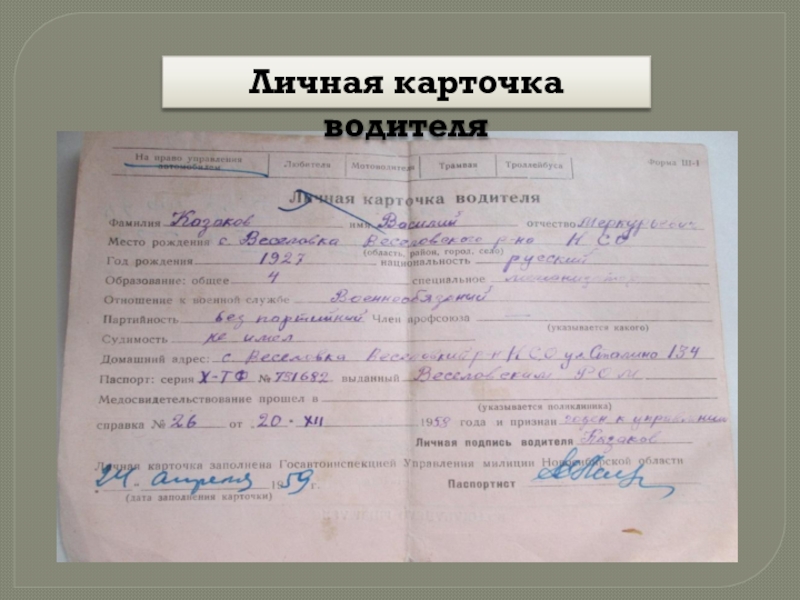 Личная карточка
водителя
На право управления автомобилем Любителя Мотоводителя Трамвая Троллейбуса Форма Ш-1
Личная карточка водителя
Фамилия Казаков имя Василий отчество Меркурьевич
Место рождения с. Веселовка Веселовского р-на НСО
(область, район, город, село)
Год рождения 1927 национальность русский
Образование: общее 4 специальное
Отношение к военной службе Военнообязаный
Партийность без партийный Член профсоюза
(указывается какого)
Судимость не имел
Домашний адрес: с. Веселовка Веселовский р-н НСО ул. Сталина 134
Паспорт: серия X-ТФ № 751682 выданный Веселовским РОМ
Медосвидетельствование прошел в
(указывается поликлиника)
справка № 26 от 20 - XII 1958 года и признан годен к управлению
Личная подпись водителя Казаков
Личная карточка заполнена Госавтоинспекцией Управления милиции Новосибирской области
24 апреля 1959 г. Паспортист
(дата заполнения карточки)